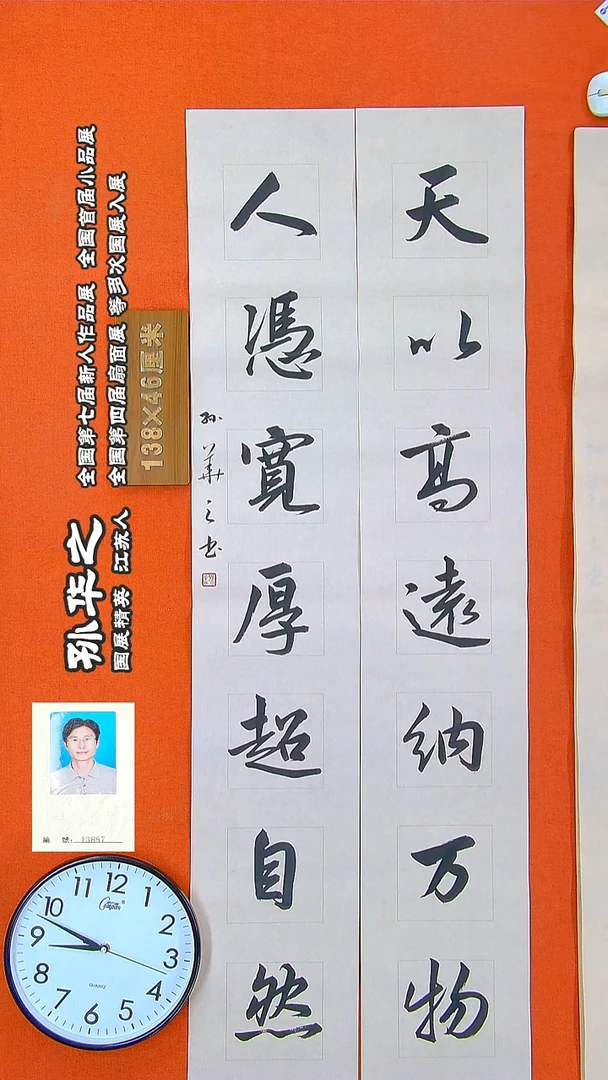 天以高遠納万物
人憑寬厚超自然
孙華之书
138×46厘米
全国第七届新人作品展 全国首届小品展
全国第四届扇面展 等多次国展入展
孙华之
国展精英 江苏人
編 號: 13857
12
1
2
3
4
5
6
7
8
9
10
11
QUARTZ